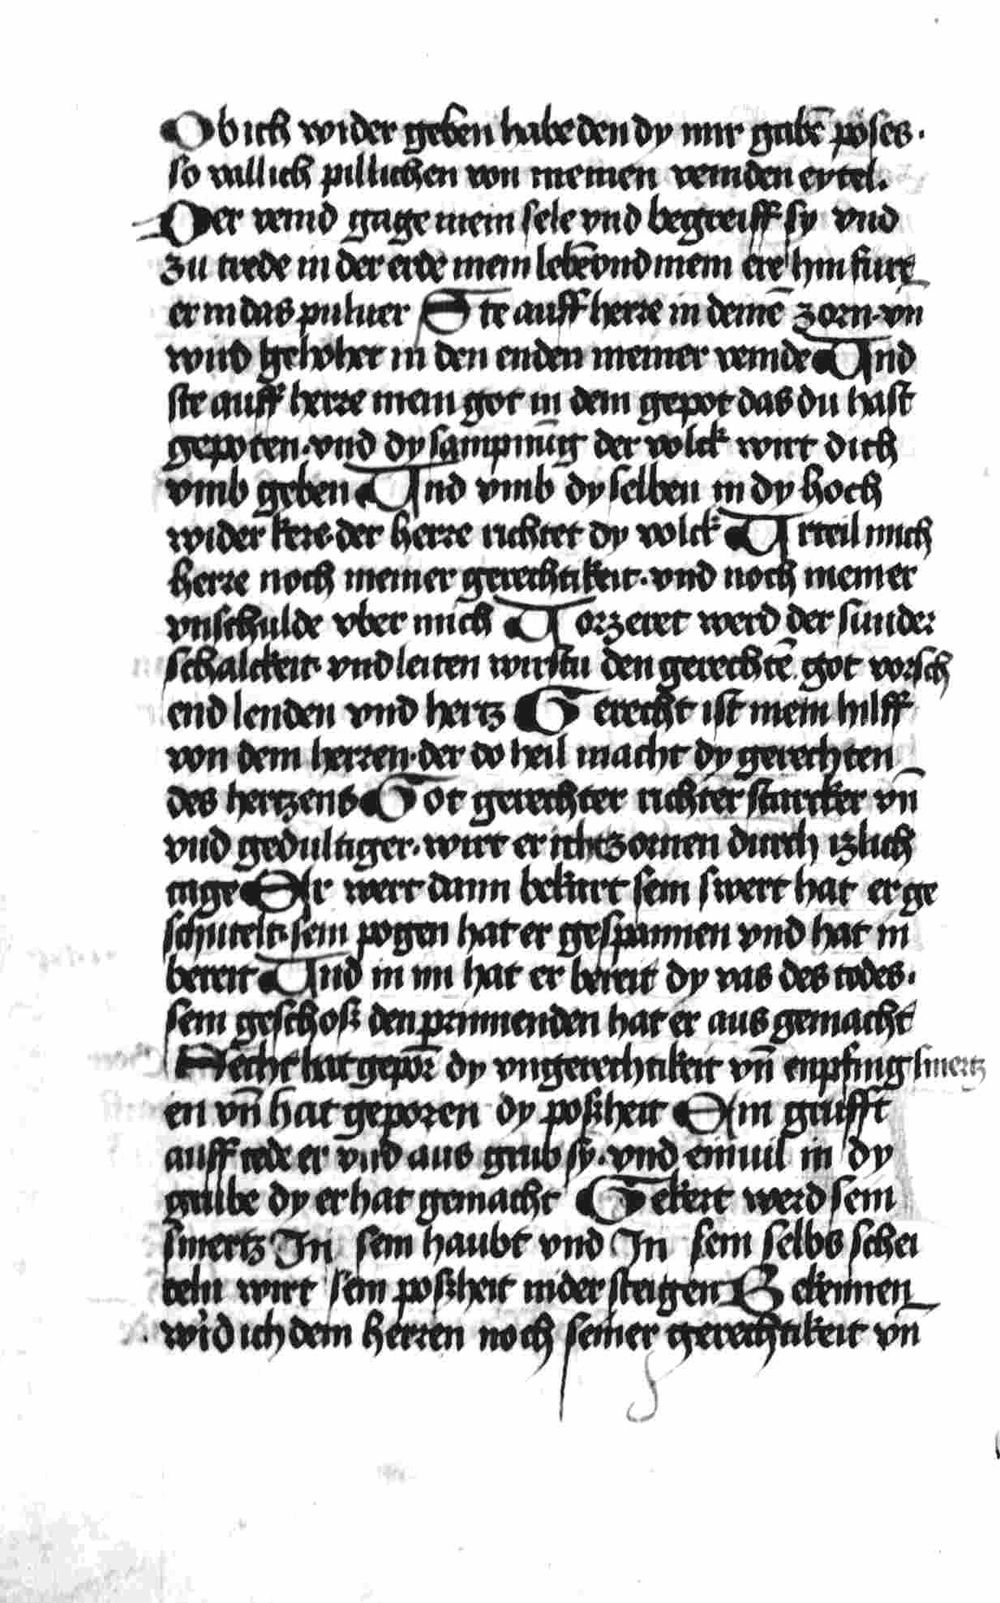 Ob ich wider geben habe den dy mir gabē pöses ·
so vall ich pillichen von meinen veinden eytel.
Der veind gage mein sele vnd begreiff sy vnd
zu trede in der erde mein lebē vnd mein ere hin fure
er in das puluer Ste auff herre in deinē zorn · vn
wird gehohet in den enden meiner veinde Vnd
ste auff herre mein got in dem gepot das du hast
gepoten · vnd dy sampnūg der volck wirt dich
vmb geben Vnd vmb dy selben in dy hoch
wider kere · der herre richtet dy volck Vrteil mich
herre noch meiner gerechtikeit · vnd noch meiner
vnschulde vber mich Vorzeret werd der sunder
schalckeit · vnd leiten wirstu den gerechtē got vorsch
end lenden vnd hertz Gerecht ist mein hilff
von dem herren · der do heil macht dy gerechten
des hertzens Got gerechter richter starcker vn̄
vnd gedultiger · wirt er icht zornen durch izlich
tage Ir wert dann bekart sein swert hat er ge
schutelt · sein pogen hat er gespannen vnd hat in
bereit Vnd in im hat er bereit dy vas des todes ·
sein geschoß den prinnenden hat er aus gemacht
Secht hat gepor̄ dy vngerechtikeit vn̄ enpfing smertz
en vn̄ hat geporen dy poßheit Ein grufft
auff tede er vnd aus grub sy · vnd ein viel in dy
grube dy er hat gemacht Gekert werd sein
smertz In sein haubt vnd In sein selbs schei
teln wirt sein poßheit nider steigen Bekennen
wird ich dem herren noch seiner gerechtikeit vn̄